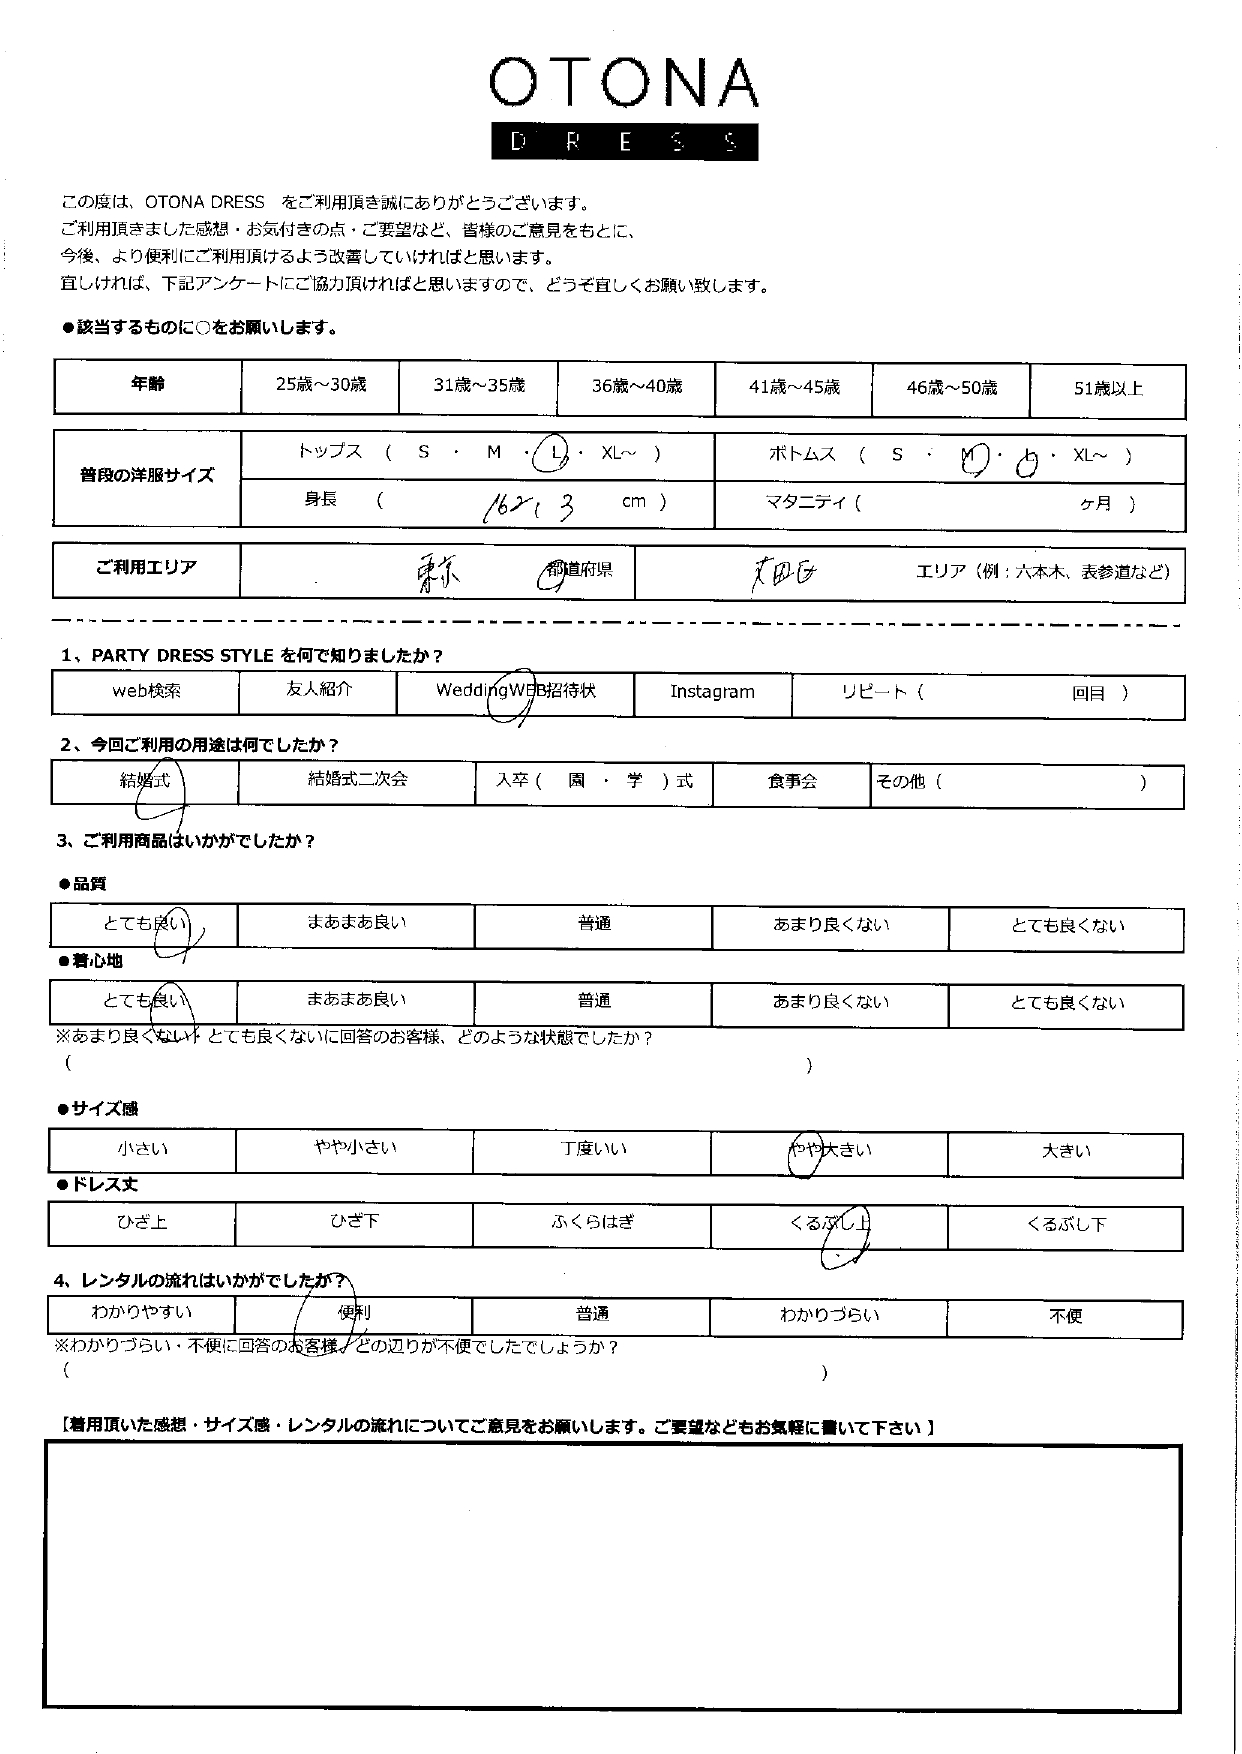 OTONA
DRESS
この度は、OTONA DRESS をご利用頂き誠にありがとうございます。
ご利用頂きました感想・お気付きの点・ご要望など、皆様のご意見をもとに、
今後、より便利にご利用頂けるよう改善していければと思います。
宜しければ、下記アンケートにご協力頂ければと思いますので、どうぞ宜しくお願い致します。
●該当するものに〇をお願いします。
年齢 25歳～30歳 31歳～35歳 36歳～40歳 41歳～45歳 46歳～50歳 51歳以上
普段の洋服サイズ トップス ( S ・ M ・ L ・ XL～ ) ボトムス ( S ・ M ・ L ・ XL～ )
身長 ( 162.3 cm ) マタニティ ( ヶ月 )
ご利用エリア 東京 都道府県 大田区 エリア（例：六本木、表参道など）
1、PARTY DRESS STYLE を何で知りましたか？
web検索 友人紹介 WeddingWEB招待状 Instagram リピート ( 回目 )
2、今回ご利用の用途は何でしたか？
結婚式 結婚式二次会 入卒 ( 園 ・ 学 ) 式 食事会 その他 ( )
3、ご利用商品はいかがでしたか？
●品質
とても良い まあまあ良い 普通 あまり良くない とても良くない
●着心地
とても良い まあまあ良い 普通 あまり良くない とても良くない
※あまり良くない・とても良くないに回答のお客様、どのような状態でしたか？
( )
●サイズ感
小さい やや小さい 丁度いい やや大きい 大きい
●ドレス丈
ひざ上 ひざ下 ふくらはぎ くるぶし上 くるぶし下
4、レンタルの流れはいかがでしたか？
わかりやすい 便利 普通 わかりづらい 不便
※わかりづらい・不便に回答のお客様、どの辺りが不便でしたでしょうか？
( )
【着用頂いた感想・サイズ感・レンタルの流れについてご意見をお願いします。ご要望などもお気軽に書いて下さい 】